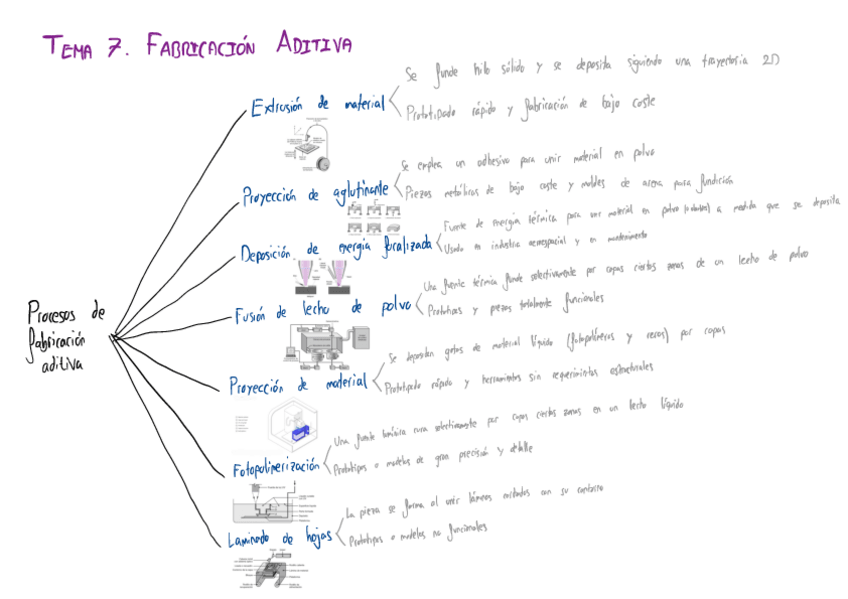 TEMA 7. FABRICACIÓN ADITIVA
Procesos de
fabricación
aditiva
Extrusión de material
Se funde hilo sólido y se deposita siguiendo una trayectoria 2D
Prototipado rápido y fabricación de bajo coste
Proyección de aglutinante
Se emplea un adhesivo para unir material en polvo
Piezas metálicas de bajo coste y moldes de arena para fundición
Deposición de energía focalizada
Fuente de energía térmica para unir material en polvo a medida que se deposita
Usado en industria aeroespacial y en mantenimiento
Fusión de lecho de polvo
Una fuente térmica funde selectivamente por capas ciertas zonas de un lecho de polvo
Prototipos y piezas totalmente funcionales
Proyección de material
Se depositan gotas de material líquido (fotopolímeros y ceras) por capas
Prototipado rápido y herramientas sin requerimientos estructurales
Fotopolimerización
Una fuente lumínica cura selectivamente por capas ciertas zonas en un lecho líquido
Prototipos o modelos de gran precisión y detalle
Laminado de hojas
La pieza se forma al unir láminas cortadas con su contorno
Prototipos o modelos no funcionales